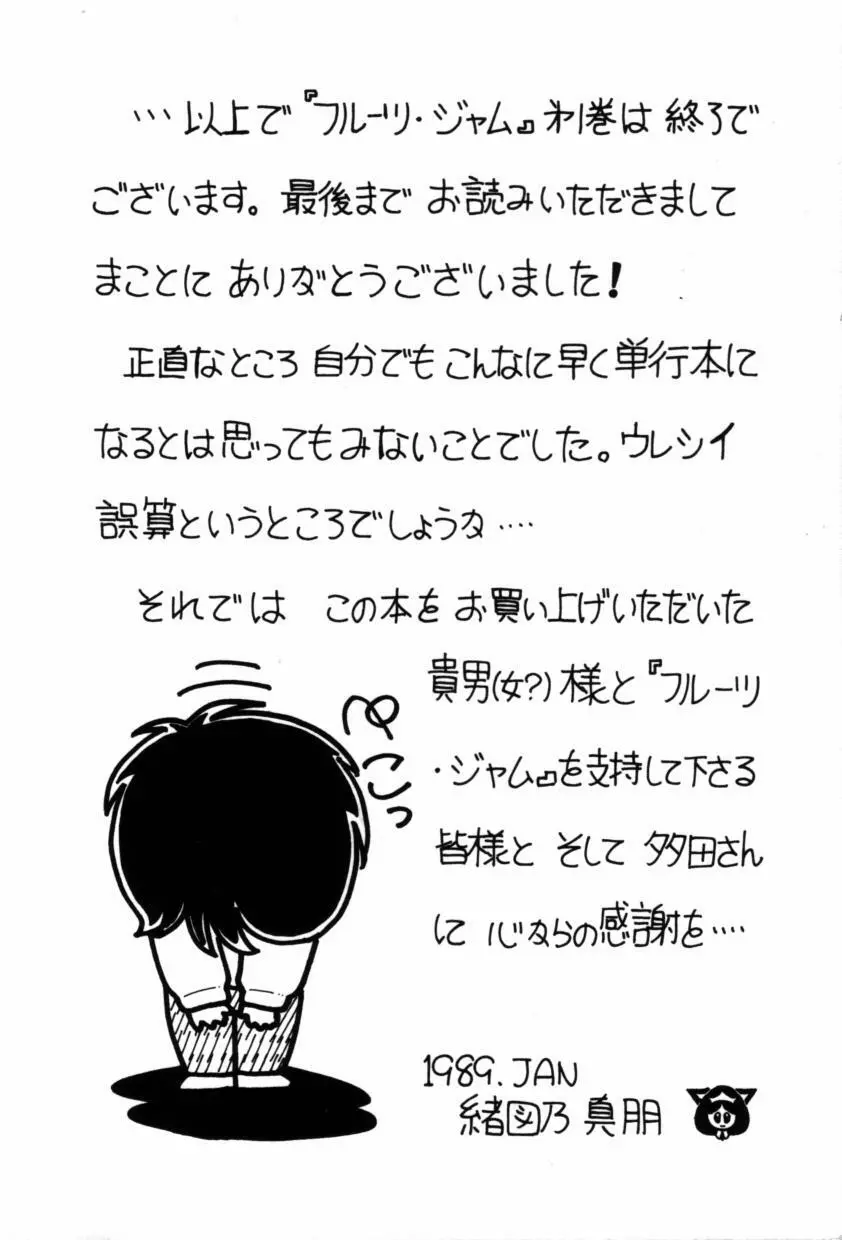 …以上で『フルーツ・ジャム』第1巻は 終了で
ございます。最後まで お読みいただきまして
まことに ありがとうございました!
正直なところ 自分でも こんなに早く単行本に
なるとは思ってもみないことでした。ウレシイ
誤算というところでしょうな‥‥
それでは この本を お買い上げいただいた
貴男(女?)様と『フルーツ
・ジャム』を支持して下さる
皆様と そして 多田さん
に 心からの感謝を‥‥
ぺこっ
1989.JAN
緒図乃 真朋